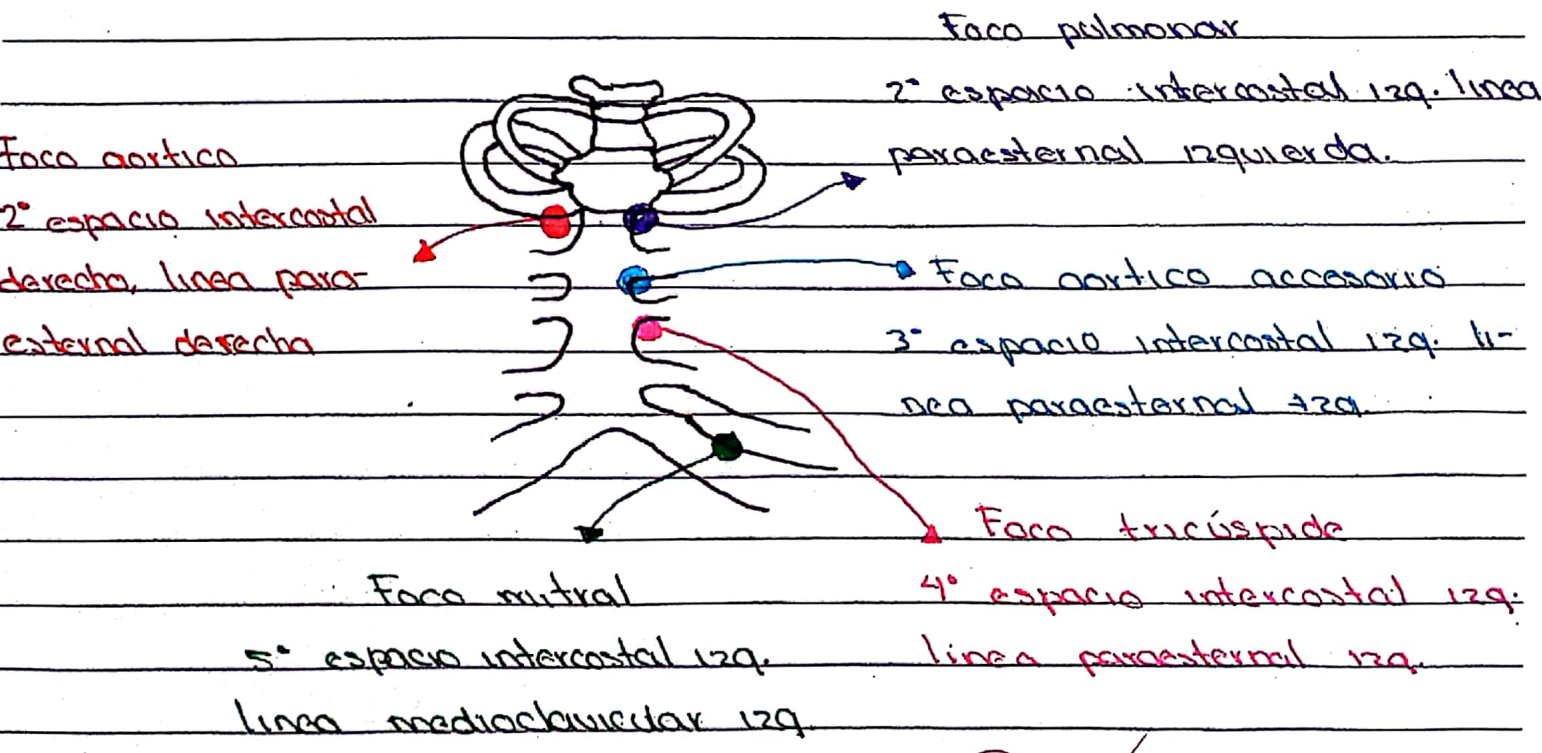 Foco pulmonar
2° espacio intercostal izq. linea
paraesternal izquierda.
Foco aortico
2° espacio intercostal
derecho, linea para-
esternal derecha
Foco aortico accesorio
3° espacio intercostal izq. li-
nea paraesternal izq.
Foco tricúspide
4° espacio intercostal izq.
linea paraesternal izq.
Foco mitral
5° espacio intercostal izq.
linea medioclavicular izq.